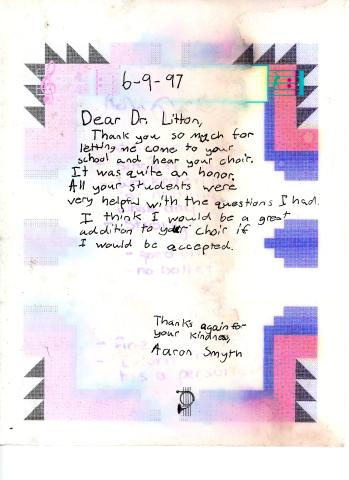 6-9-97
Dear Dr. Litton,
Thank you so much for
letting me come to your
school and hear your choir.
It was quite an honor.
All your students were
very helpful with the questions I had.
I think I would be a great
addition to your choir if
I would be accepted.
- no ballet
Thanks again for
your kindness,
Aaron Smyth